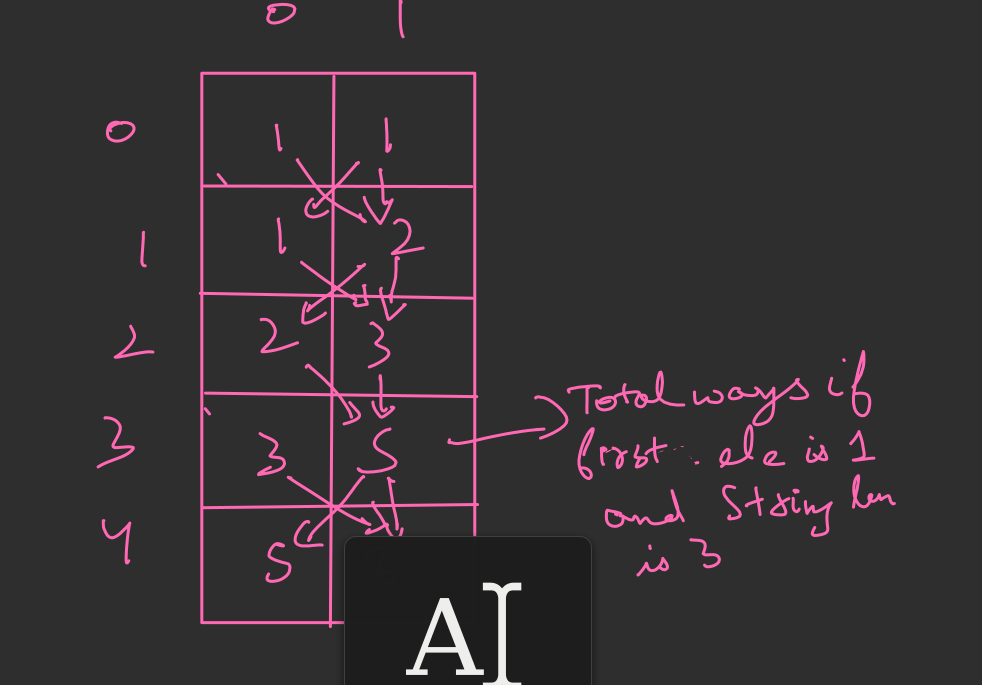 0 1
0 1 1
1 1 2
2 2 3
3 3 5
4 5
Total ways if
first ele is 1
and String len
is 3
A